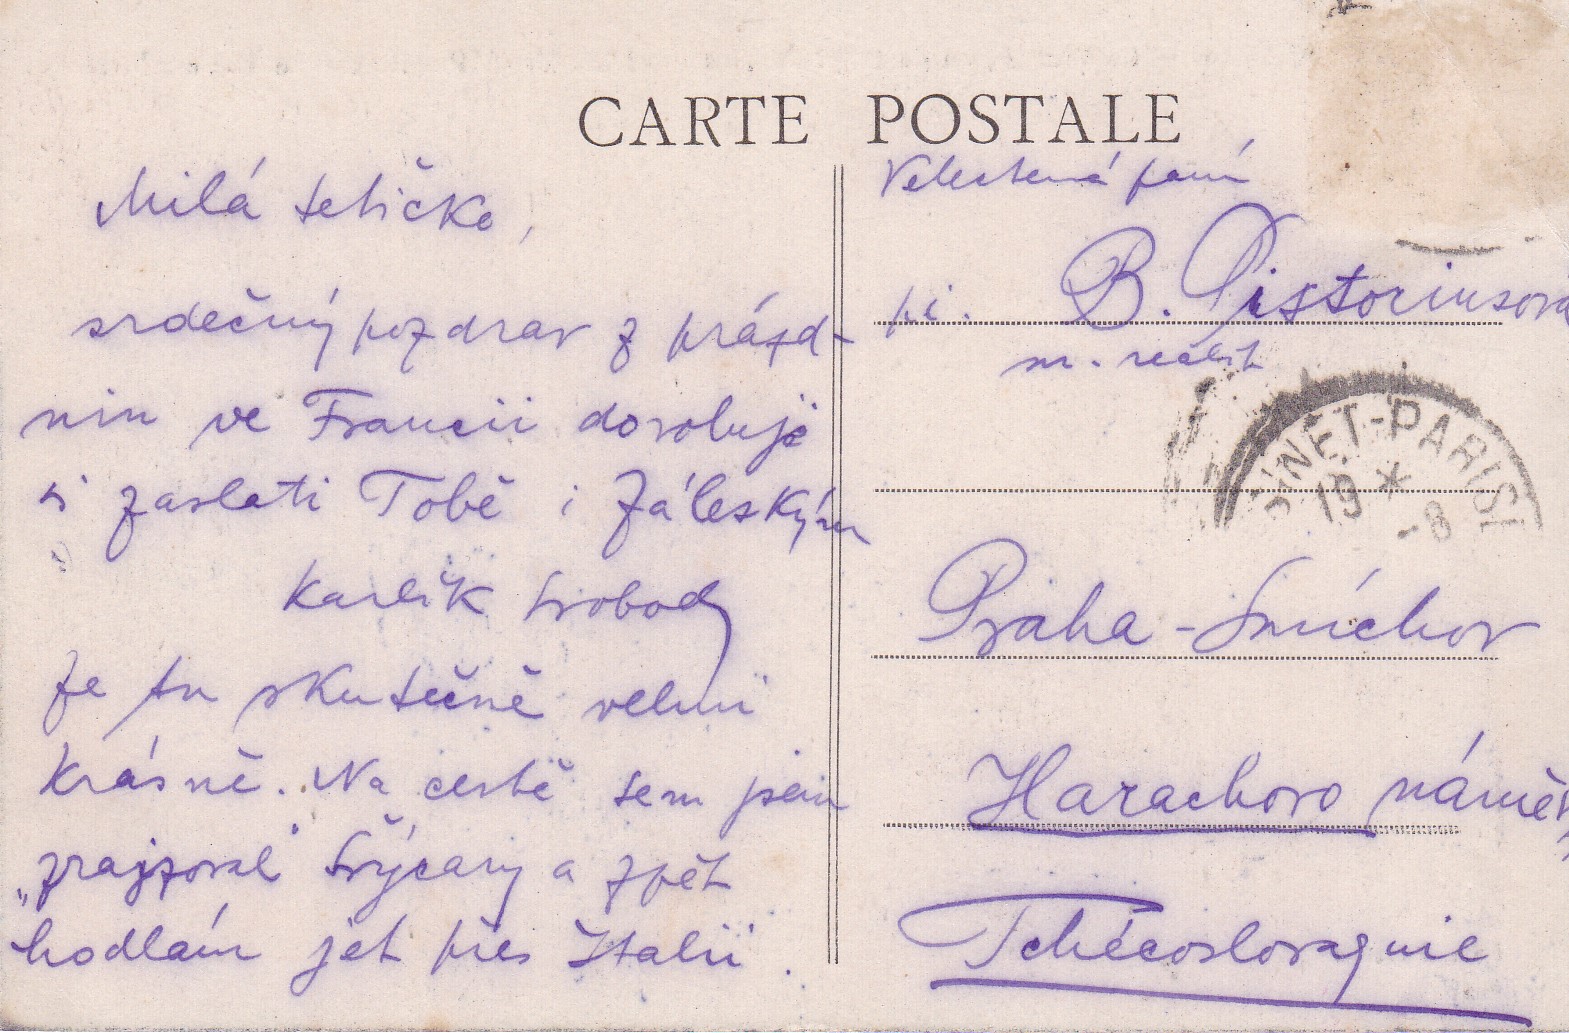 CARTE POSTALE
Milá tetičko,
srdečný pozdrav z prázd-
nin ve Francii dovoluje
si zaslati Tobě i Záleským
Karlík Svoboda
Je tu skutečně velmi
krásně. Na cestě sem jsem
„zrajzoval" Švýcary a zpět
hodlám jet přes Italii.
Velectená paní
pí. B. Pistoriusová
PARIS
19 * -8
Praha - Smíchov
Harachovo náměs
Tchécoslovaquie